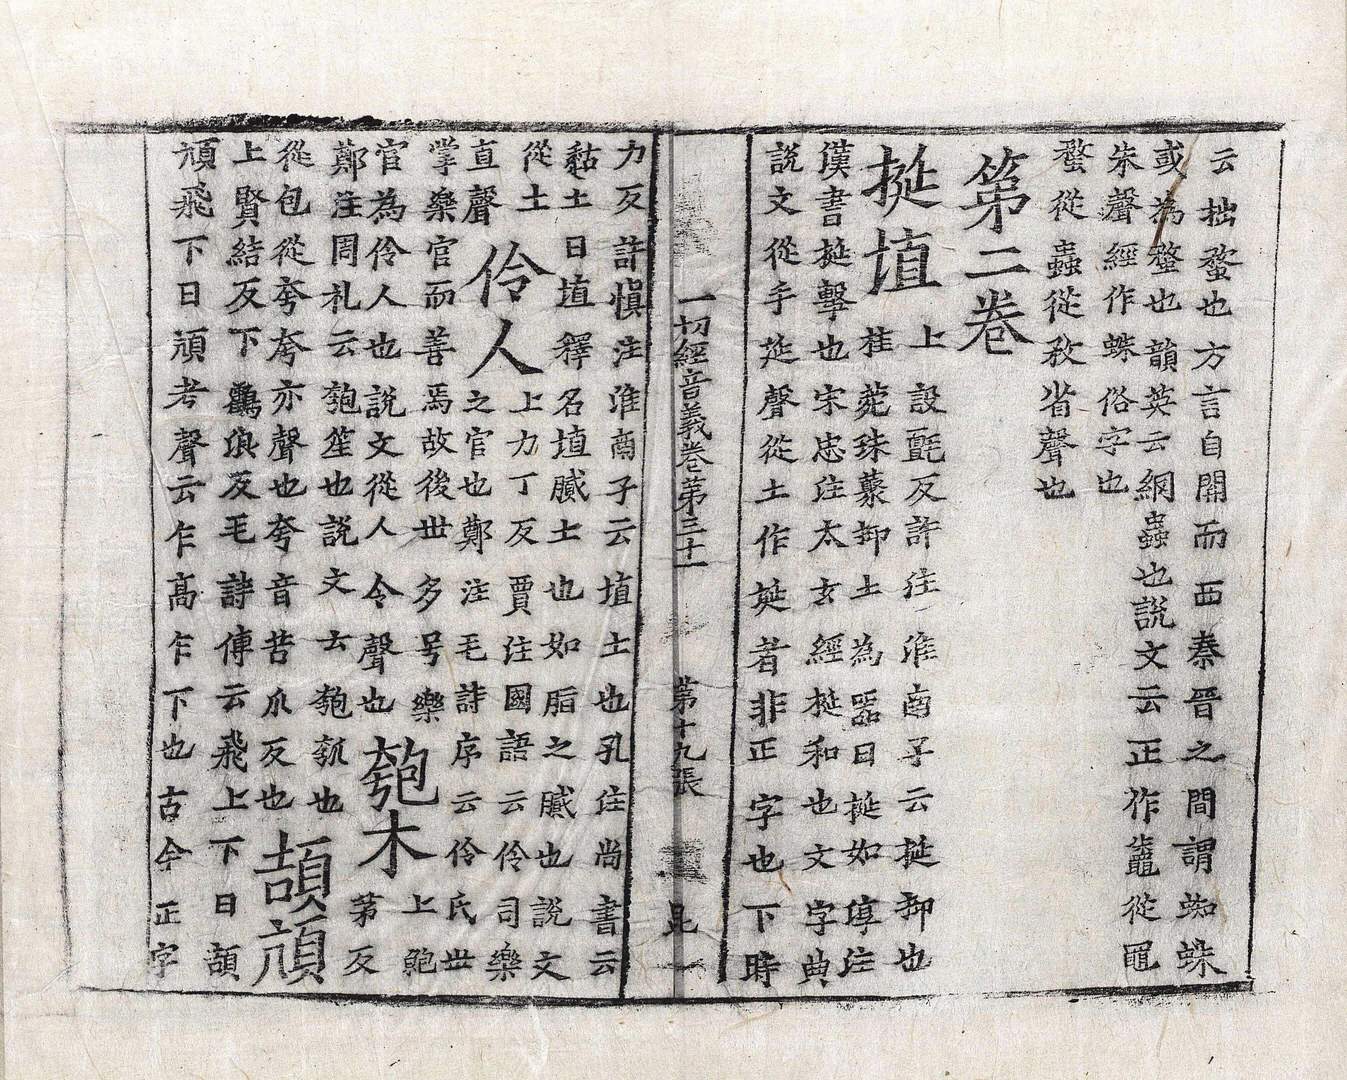 云拙蝥也方言自關而西秦晉之間謂蜘蛛
或為蝥也韻英云網蟲也説文云正作鼄從黽
朱聲經作蛛俗字也
蝥從蟲從敄省聲也
第二卷
挻埴
上設氈反許注淮南子云挻抑也
桂菀珠藂抑土為器曰挻如淳注
漢書挻擊也宋忠注太玄經挻和也文字典
説文從手延聲從土作埏者非正字也下時
一切經音義卷第三十一 第十九張 昆一
力反許慎注淮南子云埴土也孔注尚書云
黏土曰埴釋名埴膩土也如脂之膩也説文
從土
直聲
伶人
上力丁反賈注國語云伶司樂
之官也鄭注毛詩序云伶氏世
掌樂官而善焉故後世多号樂
官為伶人也説文從人令聲也
匏木
上鮑
茅反
鄭注周礼云匏笙也説文云匏瓠也
從包從夸夸亦聲也夸音苦瓜反也
頡頏
上賢結反下鶴浪反毛詩傳云飛上下曰頡
頏飛下曰頏考聲云乍高乍下也古今正字